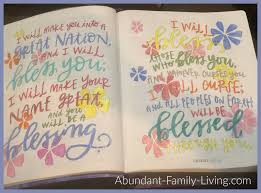 I WILL MAKE YOU INTO A
GREAT NATION,
AND I WILL
bless you;
I WILL MAKE YOUR
NAME GREAT,
AND YOU
WILL BE A
blessing.
I WILL
bless
THOSE WHO BLESS YOU,
AND WHOEVER CURSES YOU
I WILL CURSE;
AND ALL PEOPLES ON EARTH
WILL BE
blessed
Abundant-Family-Living.com